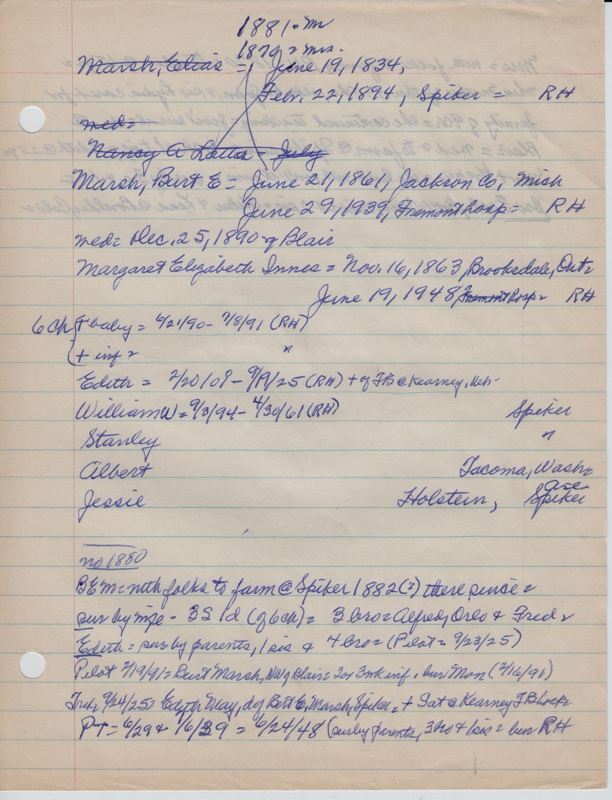 1881 = Mr
1879 = Mrs.
Marsh, Elias = June 19, 1834,
Febr. 22, 1894, Spiker = RH
med =
Nancy A Latta - July
Marsh, Burt E = June 21, 1861, Jackson Co, Mich
June 29, 1939, Fremont hosp = RH
med = Dec. 25, 1890 - of Blair
Margaret Elizabeth Innes = Nov. 16, 1863, Brooksdale, Ont =
June 19, 1948, Fremont hosp = RH
6 ch { + baby = 6/21/90 - 7/8/91 (RH)
+ inf = "
Edith = 2/20/0? - 9/19/25 (RH) + of TB @ Kearney, Neb -
William W = 9/3/94 - 4/30/61 (RH) Spiker
Stanley "
Albert Tacoma, Wash =
Jessie Holstein, are Spiker
no 1880
BEM = with folks to farm @ Spiker 1882 (?) there since =
sur by wife - 3 S 1 d (of 6 ch) = 3 bro = Alfred, Orlo & Fred =
Edith = sur by parents, 1 sis & 4 bro = (Pilot = 9/23/25)
Pilot 7/9/91 = Burt Marsh, NW of Blair = 2 or 3 wk inf = bur Mon (7/6/91)
Trib, 9/24/25 = Edith May, d of Bert E. Marsh, Spiker = + Sat @ Kearney TB hosp
PT = 6/29 & 7/6/39 = 6/24/48 (sur by parents, 3 bro & 1 sis = bur RH